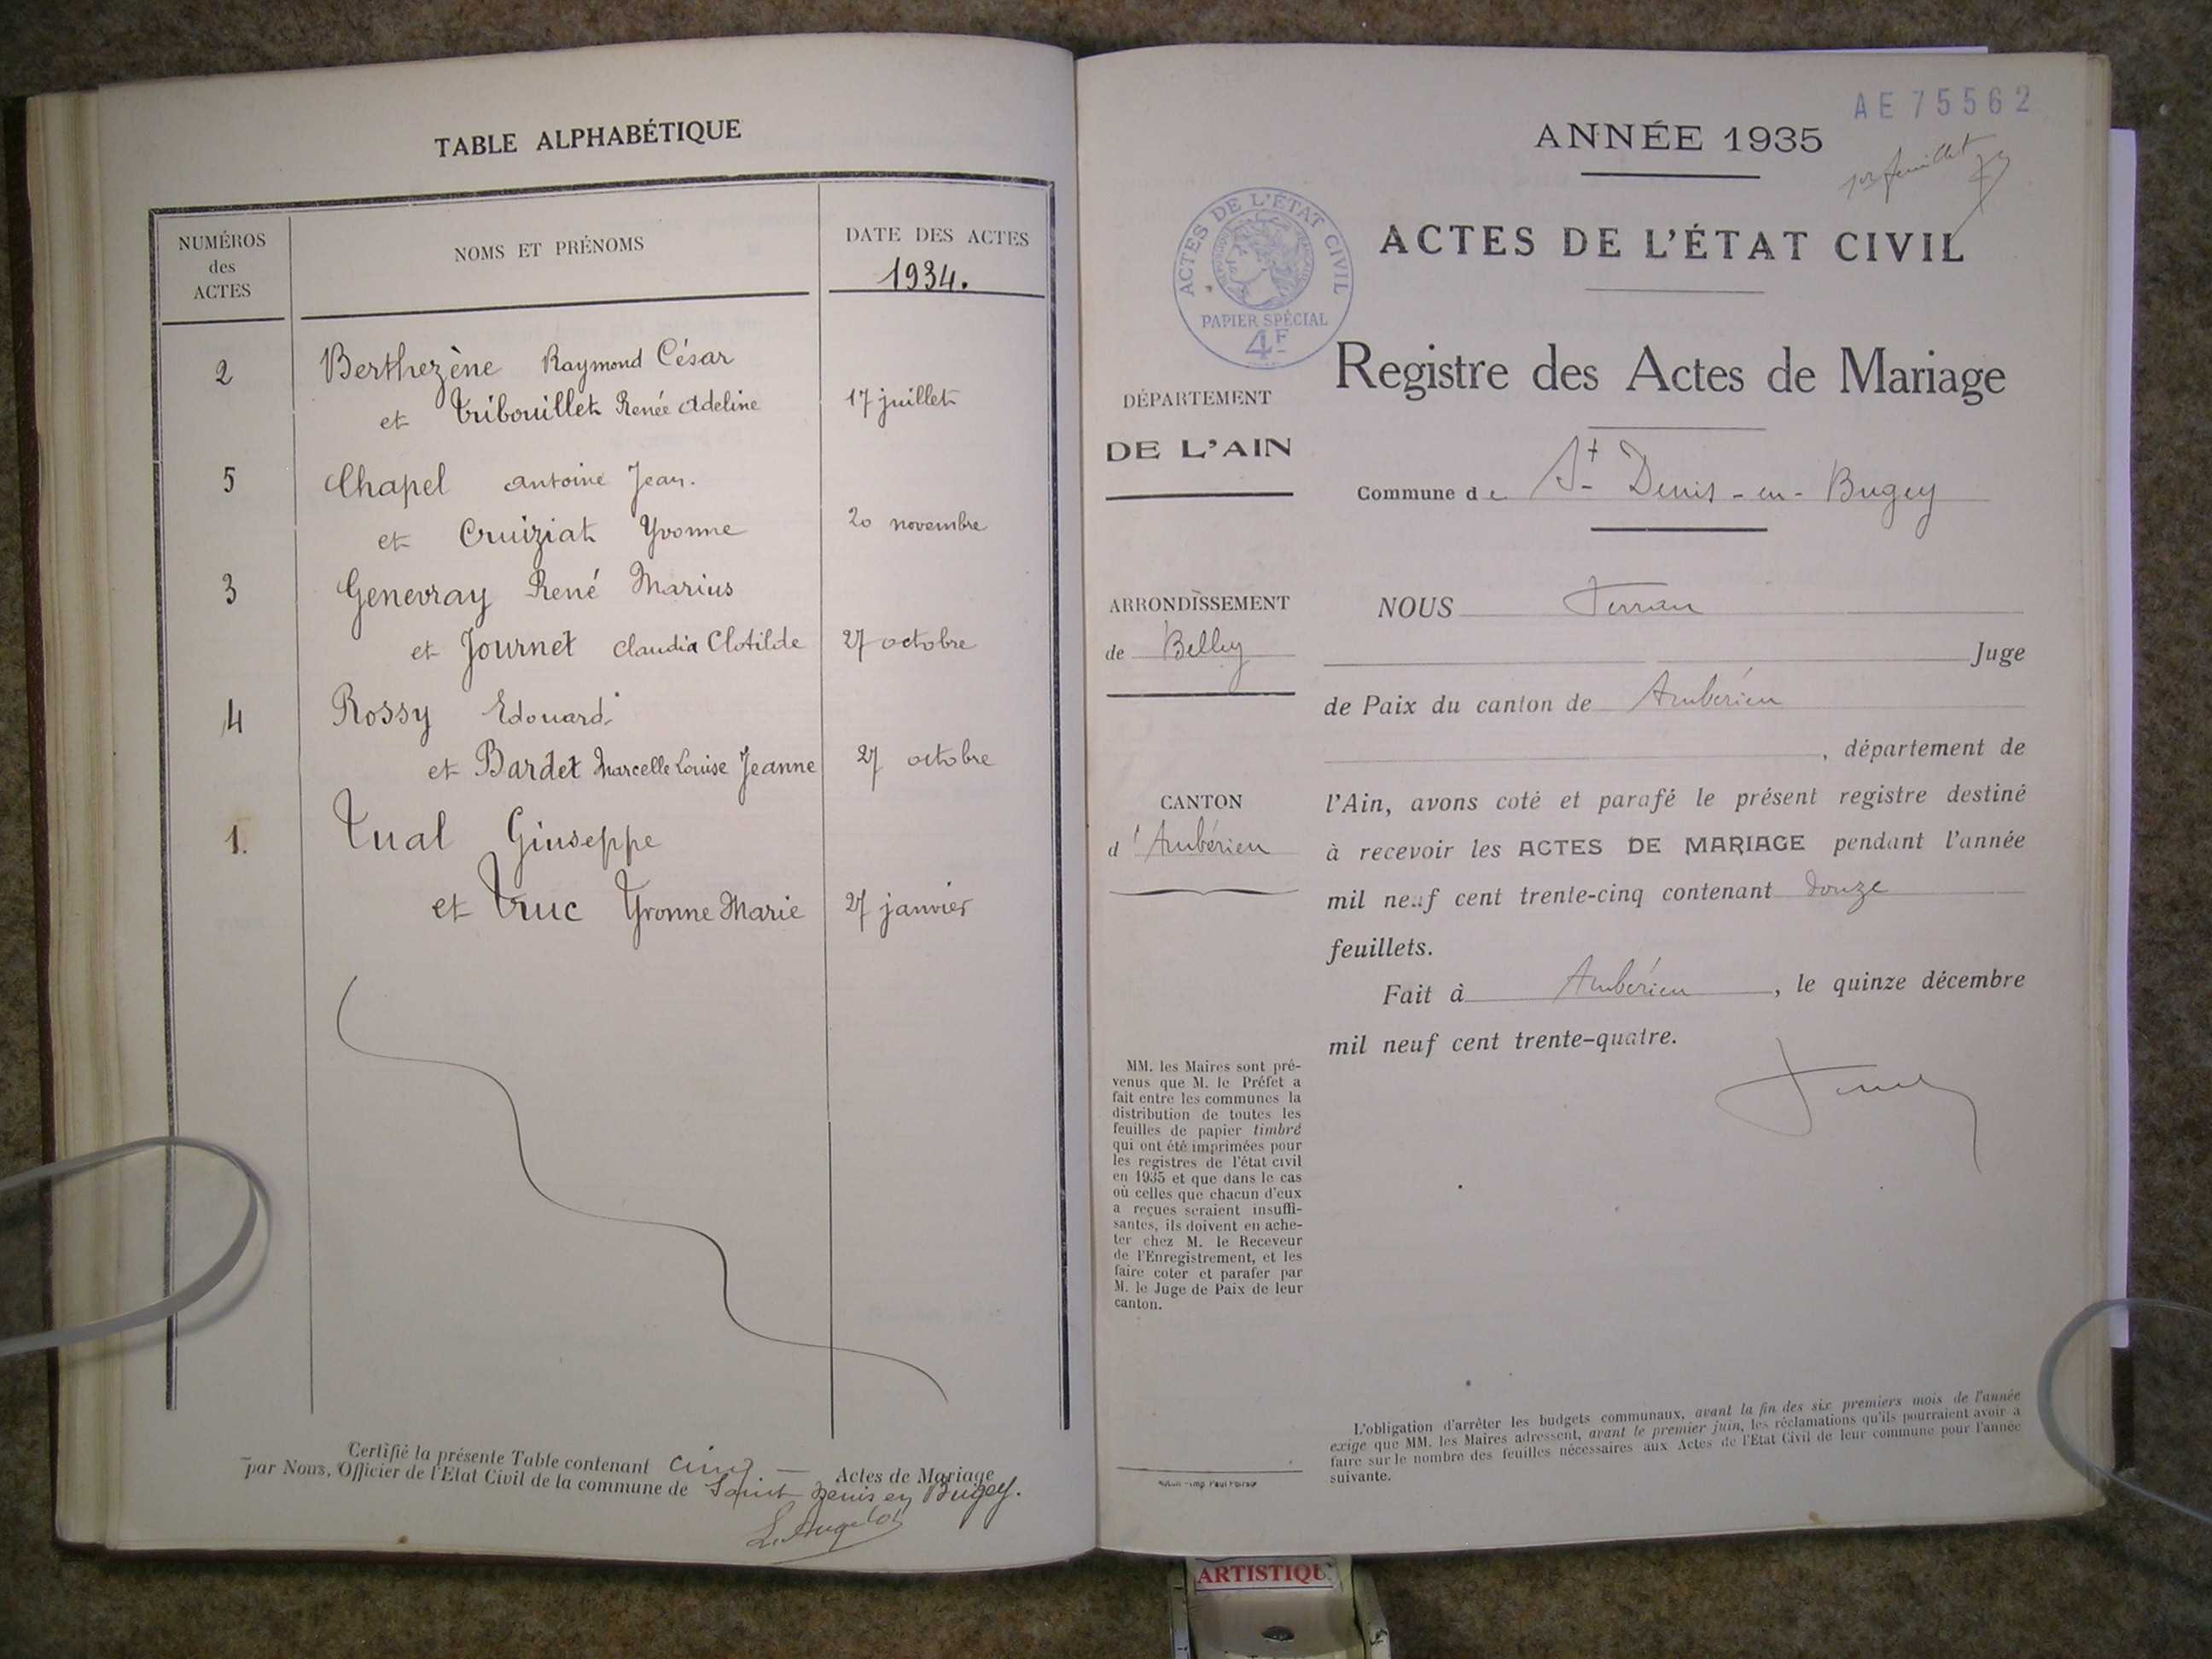 TABLE ALPHABÉTIQUE
NUMÉROS
des
ACTES
NOMS ET PRÉNOMS
DATE DES ACTES
1934.
2
Berthezène Raymond César
et Tribouillet Renée Adeline
17 juillet
5
Chapel Antoine Jean.
et Cruiziat Yvonne
20 novembre
3
Genevray René Marius
et Journet Claudia Clotilde
27 octobre
4
Rossy Edouard
et Bardet Marcelle Louise Jeanne
27 octobre
1.
Tual Giuseppe
et Truc Yvonne Marie
27 janvier
Certifié la présente Table contenant cinq — Actes de Mariage
par Nous, Officier de l'Etat Civil de la commune de Saint Denis en Bugey.
AE 75562
ANNÉE 1935
1er feuillet
ACTES DE L'ÉTAT CIVIL
ACTES DE L'ÉTAT CIVIL
RÉPUBLIQUE FRANÇAISE
PAPIER SPÉCIAL
4F
Registre des Actes de Mariage
DÉPARTEMENT
DE L'AIN
Commune de St Denis-en-Bugey
ARRONDISSEMENT
de Belley
CANTON
d'Ambérieu
NOUS
Juge
de Paix du canton de Ambérieu
, département de
l'Ain, avons coté et parafé le présent registre destiné
à recevoir les ACTES DE MARIAGE pendant l'année
mil neuf cent trente-cinq contenant douze
feuillets.
Fait à Ambérieu, le quinze décembre
mil neuf cent trente-quatre.
MM. les Maires sont pré-
venus que M. le Préfet a
fait entre les communes la
distribution de toutes les
feuilles de papier timbré
qui ont été imprimées pour
les registres de l'état civil
en 1935 et que dans le cas
où celles que chacun d'eux
a reçues seraient insuffi-
santes, ils doivent en ache-
ter chez M. le Receveur
de l'Enregistrement, et les
faire coter et parafer par
M. le Juge de Paix de leur
canton.
L'obligation d'arrêter les budgets communaux, avant la fin des six premiers mois de l'année
exige que MM. les Maires adressent, avant le premier juin, les réclamations qu'ils pourraient avoir à
faire sur le nombre des feuilles nécessaires aux Actes de l'Etat Civil de leur commune pour l'année
suivante.
ARTISTIQU